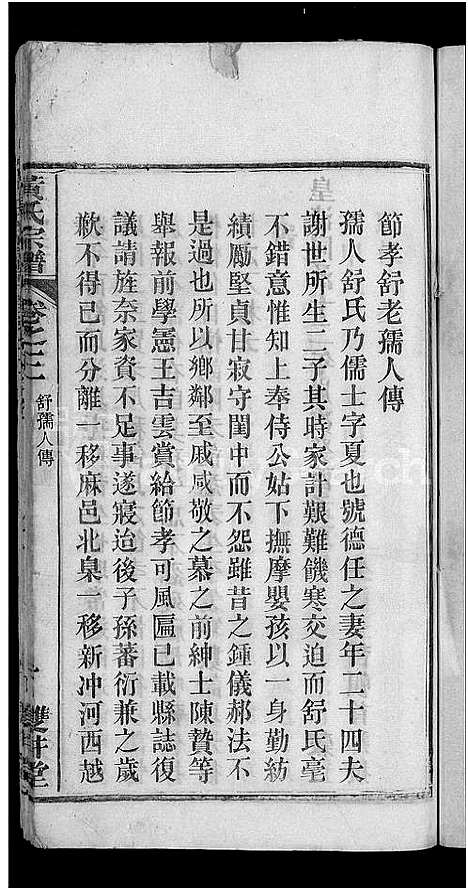 節孝舒老孺人傳
孺人舒氏乃儒士字夏也號德任之妻年二十四夫
謝世所生二子其時家計艱難饑寒交迫而舒氏毫
不錯意惟知上奉侍公姑下撫摩嬰孩以一身勤紡
績勵堅貞甘寂守閨中而不怨雖昔之鍾儀郝法不
是過也所以鄉鄰至戚咸敬之慕之前紳士陳贊等
舉報前學憲王吉雲賞給節孝可風匾已載縣誌復
議請旌奈家資不足事遂寢迨後子孫蕃衍兼之歲
歉不得已而分離一移麻邑北臯一移新冲河西越
黃氏宗譜
卷之三
舒孺人傳
雙井堂